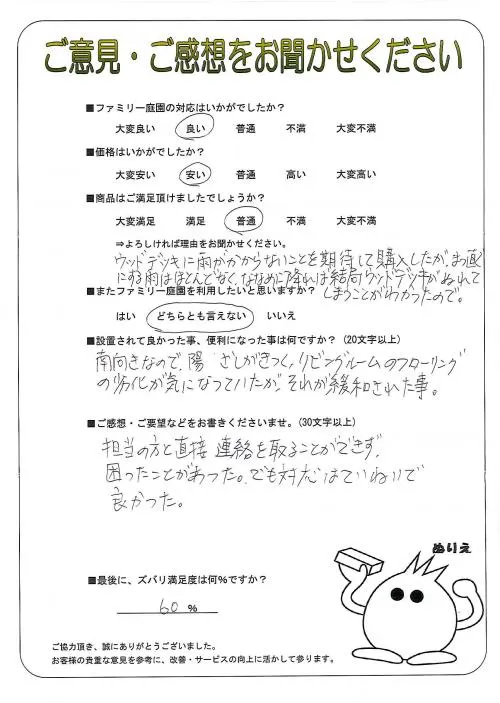 ご意見・ご感想をお聞かせください
■ファミリー庭園の対応はいかがでしたか？
大変良い 良い 普通 不満 大変不満
■価格はいかがでしたか？
大変安い 安い 普通 高い 大変高い
■商品はご満足頂けましたでしょうか？
大変満足 満足 普通 不満 大変不満
⇒よろしければ理由をお聞かせください。
ウッドデッキに雨がかからないことを期待して購入したが、まっ直
にふる雨はほとんどなく、ななめに降れば結局ウッドデッキがぬれて
しまうことがわかったので。
■またファミリー庭園を利用したいと思いますか？
はい どちらとも言えない いいえ
■設置されて良かった事、便利になった事は何ですか？（20文字以上）
南向きなので、陽ざしがきつく、リビングルームのフローリング
の劣化が気になっていたが、それが緩和された事。
■ご感想・ご要望などをお書きくださいませ。（30文字以上）
担当の方と直接連絡を取ることができず、
困ったことがあった。でも対応はていねいで
良かった。
ぬりえ
■最後に、ズバリ満足度は何％ですか？
60 %
ご協力頂き、誠にありがとうございました。
お客様の貴重な意見を参考に、改善・サービスの向上に活かして参ります。